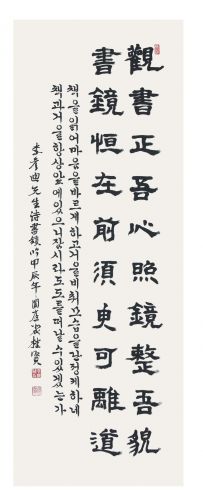 觀書正吾心照鏡整吾貌
書鏡恒在前須臾可離道
책을읽어마음을바르게하고거울을비춰모습을단정케하네
책과거울을항상앞에있으니잠시라도도를떠날수있겠는가
李彦迪先生詩書鏡吟甲辰年